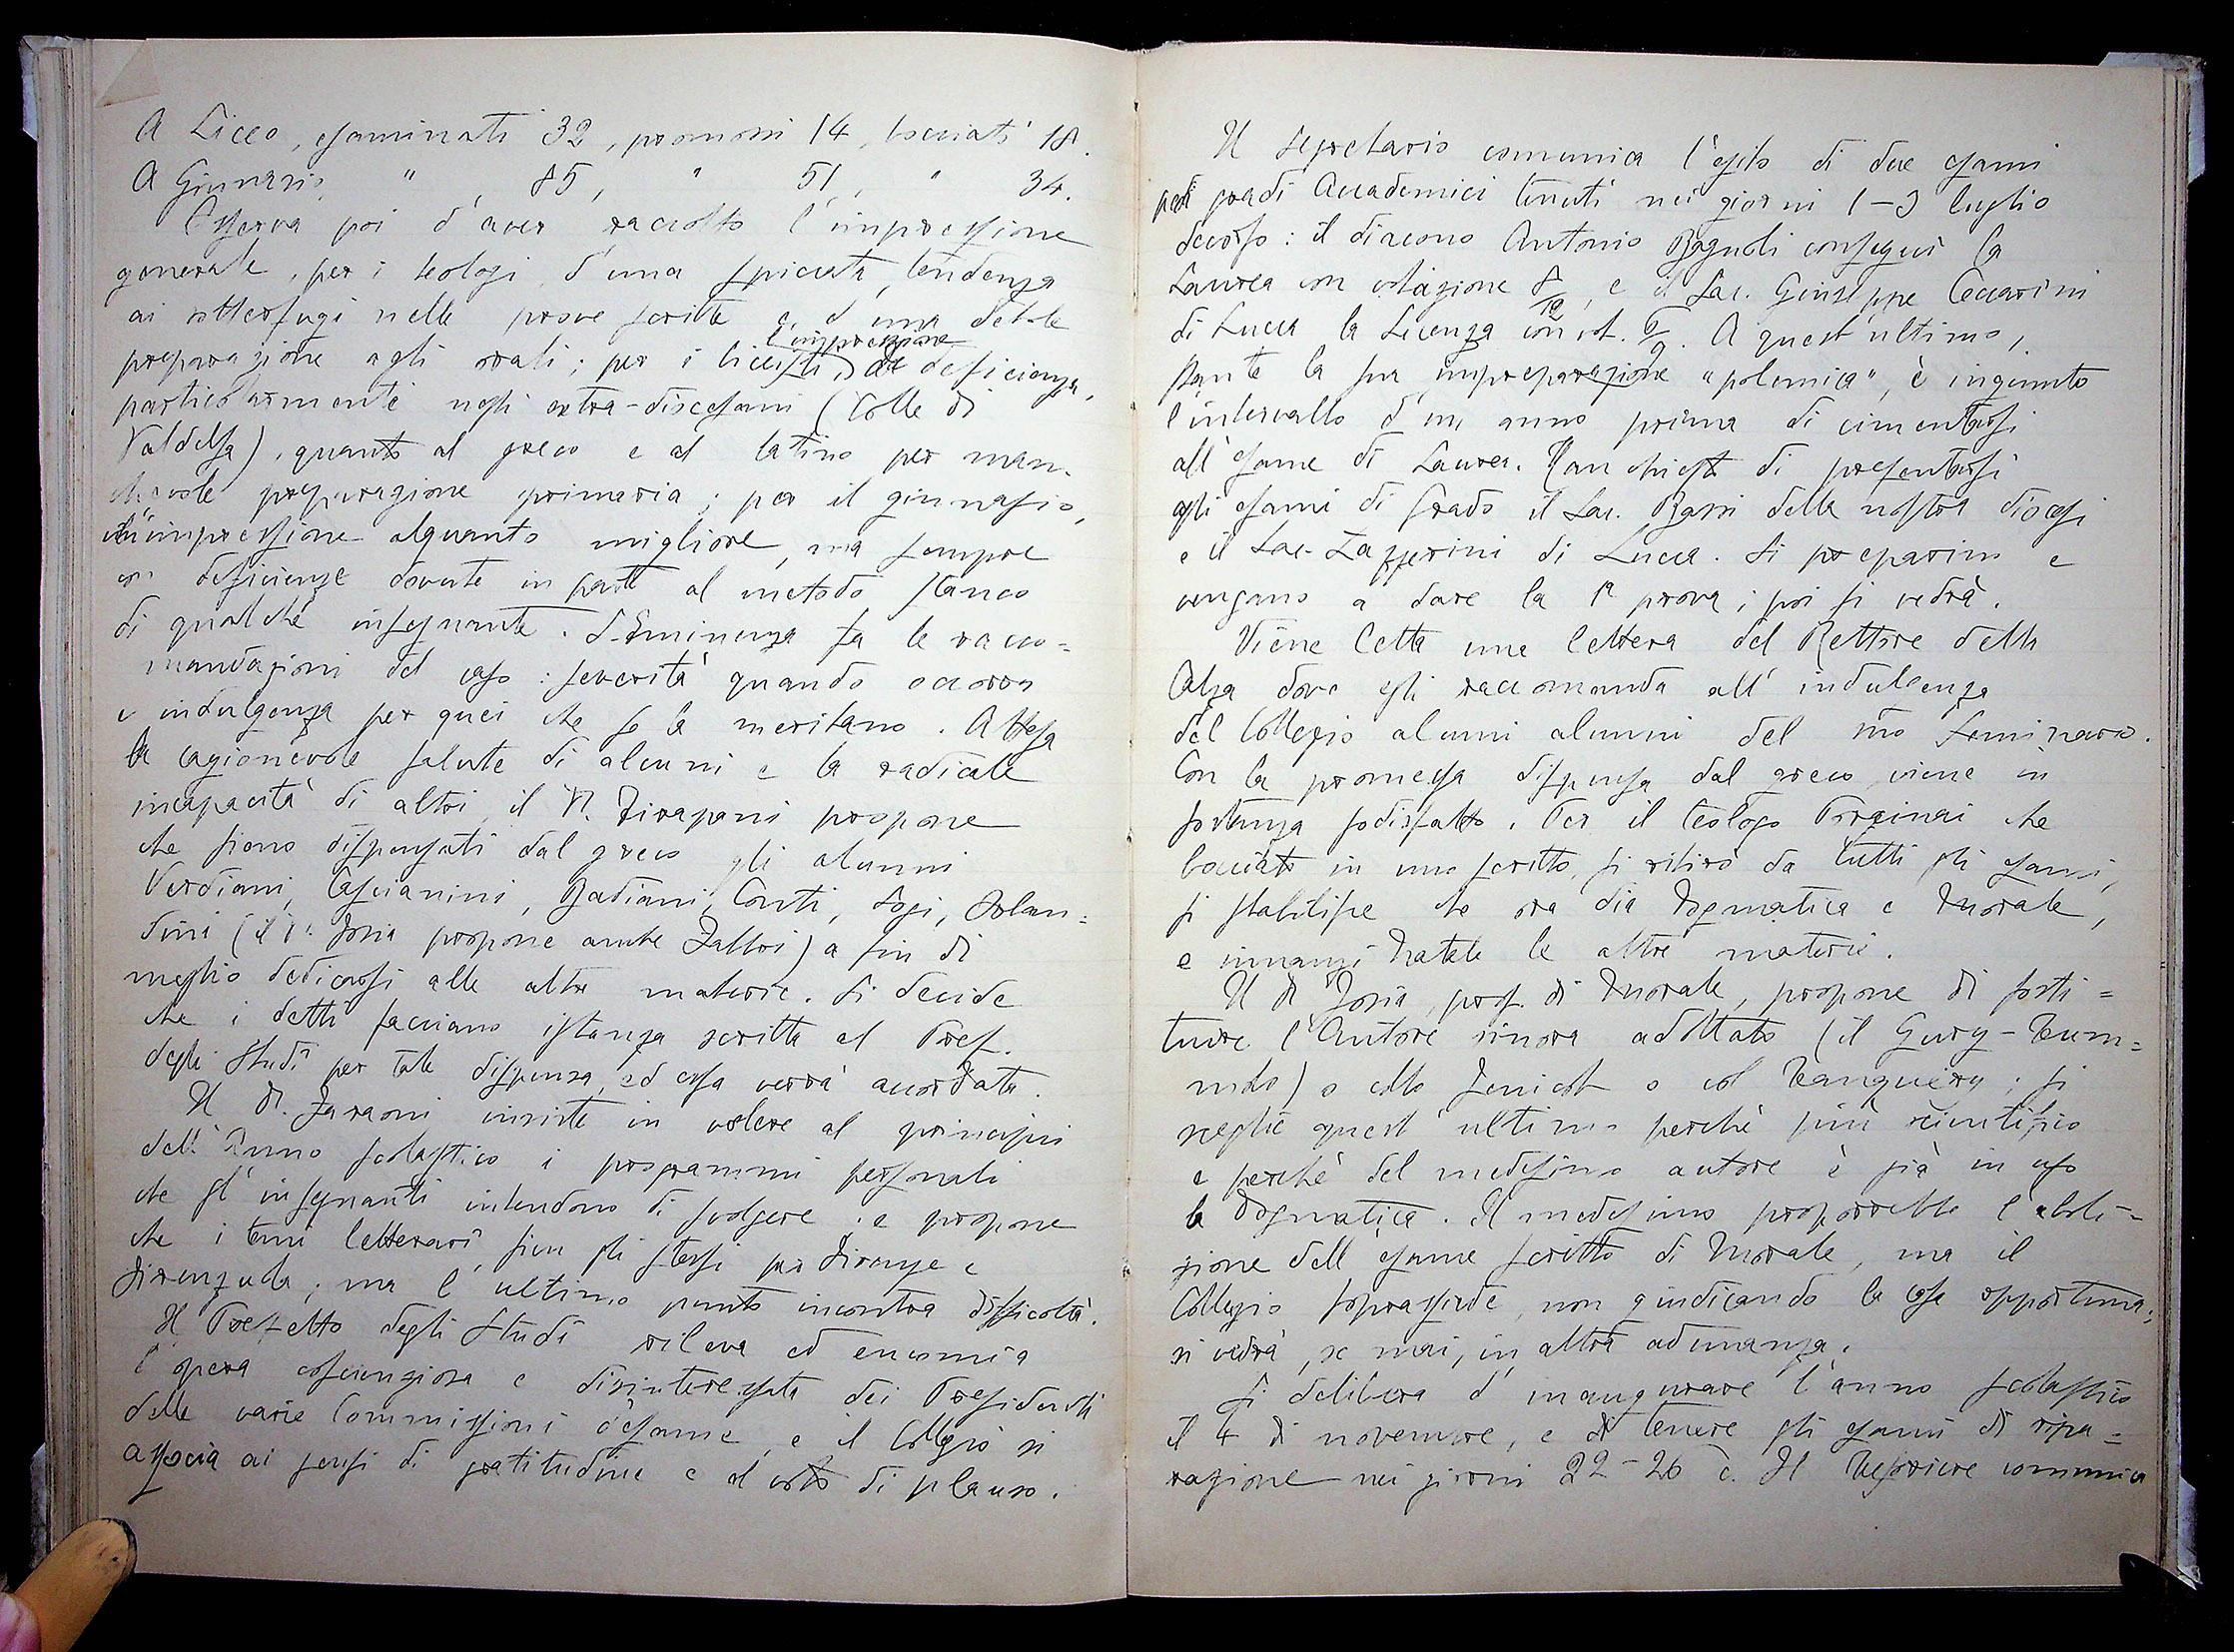 A Liceo, esaminati 32, promossi 14, bocciati 18.
A Ginnasio, " , 85, " 51, " 34.
Osserva poi d'aver raccolto l'impressione
generale, per i teologi, d'una spiccata tendenza
ai sotterfugi nelle prove scritte e d'una debole
preparazione agli orali; per i liceisti, l'impressione di deficienza,
particolarmente negli extra-diocesani (Colle di
Valdelsa), quanto al greco e al latino per man-
chevole preparazione primaria; per il ginnasio,
un'impressione alquanto migliore, ma sempre
con deficienze dovute in parte al metodo stanco
di qualche insegnante. S. Eminenza fa le racco=
mandazioni del caso: severità quando occorra
e indulgenza per quei che se la meritano. Attesa
la cagionevole salute di alcuni e la radicale
incapacità di altri, il R. Tirapani propone
che sieno dispensati dal greco gli alunni
Verdiani, Cascianini, Badiani, Conti, Sogi, Orlan=
dini (il R. Josia propone anche Fattori) a fin di
meglio dedicarsi alle altre materie. Si decide
che i detti facciano istanza scritta al Pref.
degli Studi per tale dispensa, ed essa verrà accordata.
Il R. insiste in volere al principio
dell'Anno scolastico i programmi personali
che gl'insegnanti intendono di svolgere; e propone
che i temi letterari sien gli stessi per Firenze e
Firenzuola; ma l'ultimo punto incontra difficoltà.
Il Prefetto degli Studi rileva ed encomia
l'opera coscienziosa e disinteressata dei Presidenti
delle varie Commissioni d'esame, e il Collegio si
associa ai sensi di gratitudine e al voto di plauso.
Il Segretario comunica l'esito di due esami
pei gradi Accademici tenuti nei giorni 1-3 luglio
decorso: il diacono Antonio Bagnoli conseguì la
Laurea con votazione 8/10, e il Sac. Giuseppe Ceccarini
di Lucca la Licenza con vot. 6/9. A quest'ultimo,
stante la sua impreparazione "polemica", è ingiunto
l'intervallo d'un anno prima di cimentarsi
all'esame di Laurea. Han chiesto di presentarsi
agli esami di Grado il Sac. Bassi della nostra diocesi
e il Sac. Lazzerini di Lucca. Si preparino e
vengano a dare la 1ª prova; poi si vedrà.
Viene letta una lettera del Rettore della
Calza dove egli raccomanda all'indulgenza
del Collegio alcuni alunni del suo Seminario.
Con la promessa dispensa dal greco, viene in
sostanza sodisfatto. Per il teologo Porcinai che
bocciato in uno scritto, si ritirò da tutti gli esami,
si stabilisce che ora dia Dogmatica e Morale,
e innanzi Natale le altre materie.
Il R. Josia, prof. di Morale, propone di sosti=
tuire l'Autore sinora adottato (il Gury-Tum=
mdo) o collo Jenicot o col Tanquerey; si
sceglie quest'ultimo perchè più scientifico
e perchè del medesimo autore è già in uso
la Dogmatica. Il medesimo proporrebbe l'aboli=
zione dell'esame scritto di Morale, ma il
Collegio soprassiede, non giudicando la cosa opportuna;
si vedrà, se mai, in altra adunanza.
Si delibera d'inaugurare l'anno scolastico
il 4 di novembre, e di tenere gli esami di ripa=
razione nei giorni 22-26 c. Il Tesoriere comunica